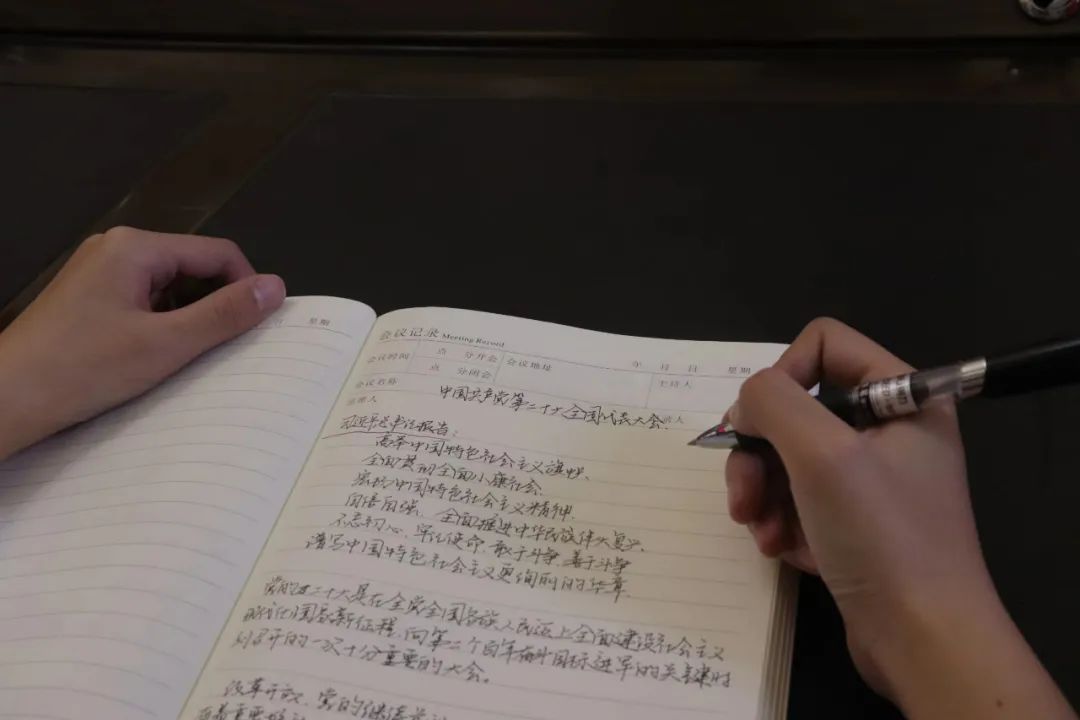 星期
会议记录 Meeting Record
会议时间 点 分开会 会议地址 年 月 日 星期
点 分闭会 主持人
会议名称 中国共产党第二十次全国代表大会
习近平总书记报告：
高举中国特色社会主义旗帜、
全面贯彻全面小康社会、
中国特色社会主义精神、
自信自强、全面推进中华民族伟大复兴、
不忘初心、牢记使命、敢于斗争、善于斗争
谱写中国特色社会主义更绚丽的华章
党的二十大是在全党全国各族人民迈上全面建设社会主义
现代化国家新征程、向第二个百年奋斗目标进军的关键时
刻召开的一次十分重要的大会。
改革开放、党的